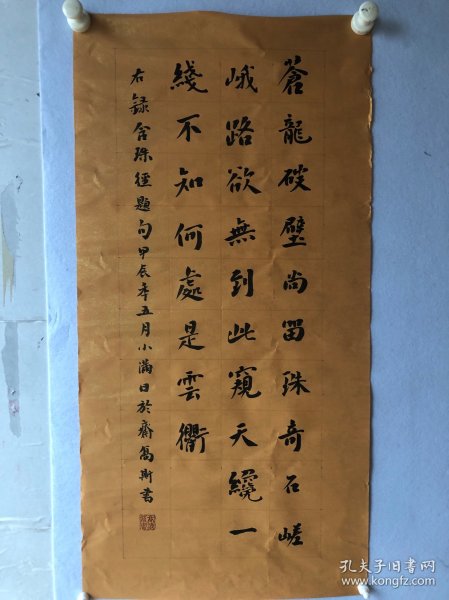 蒼龍破壁尚留珠奇石嵯
峨路欲無到此窺天纔一
綫不知何處是雲衢
右録含珠徑題句甲辰年五月小滿日於齋
孔夫子旧书网
www.kongfz.com